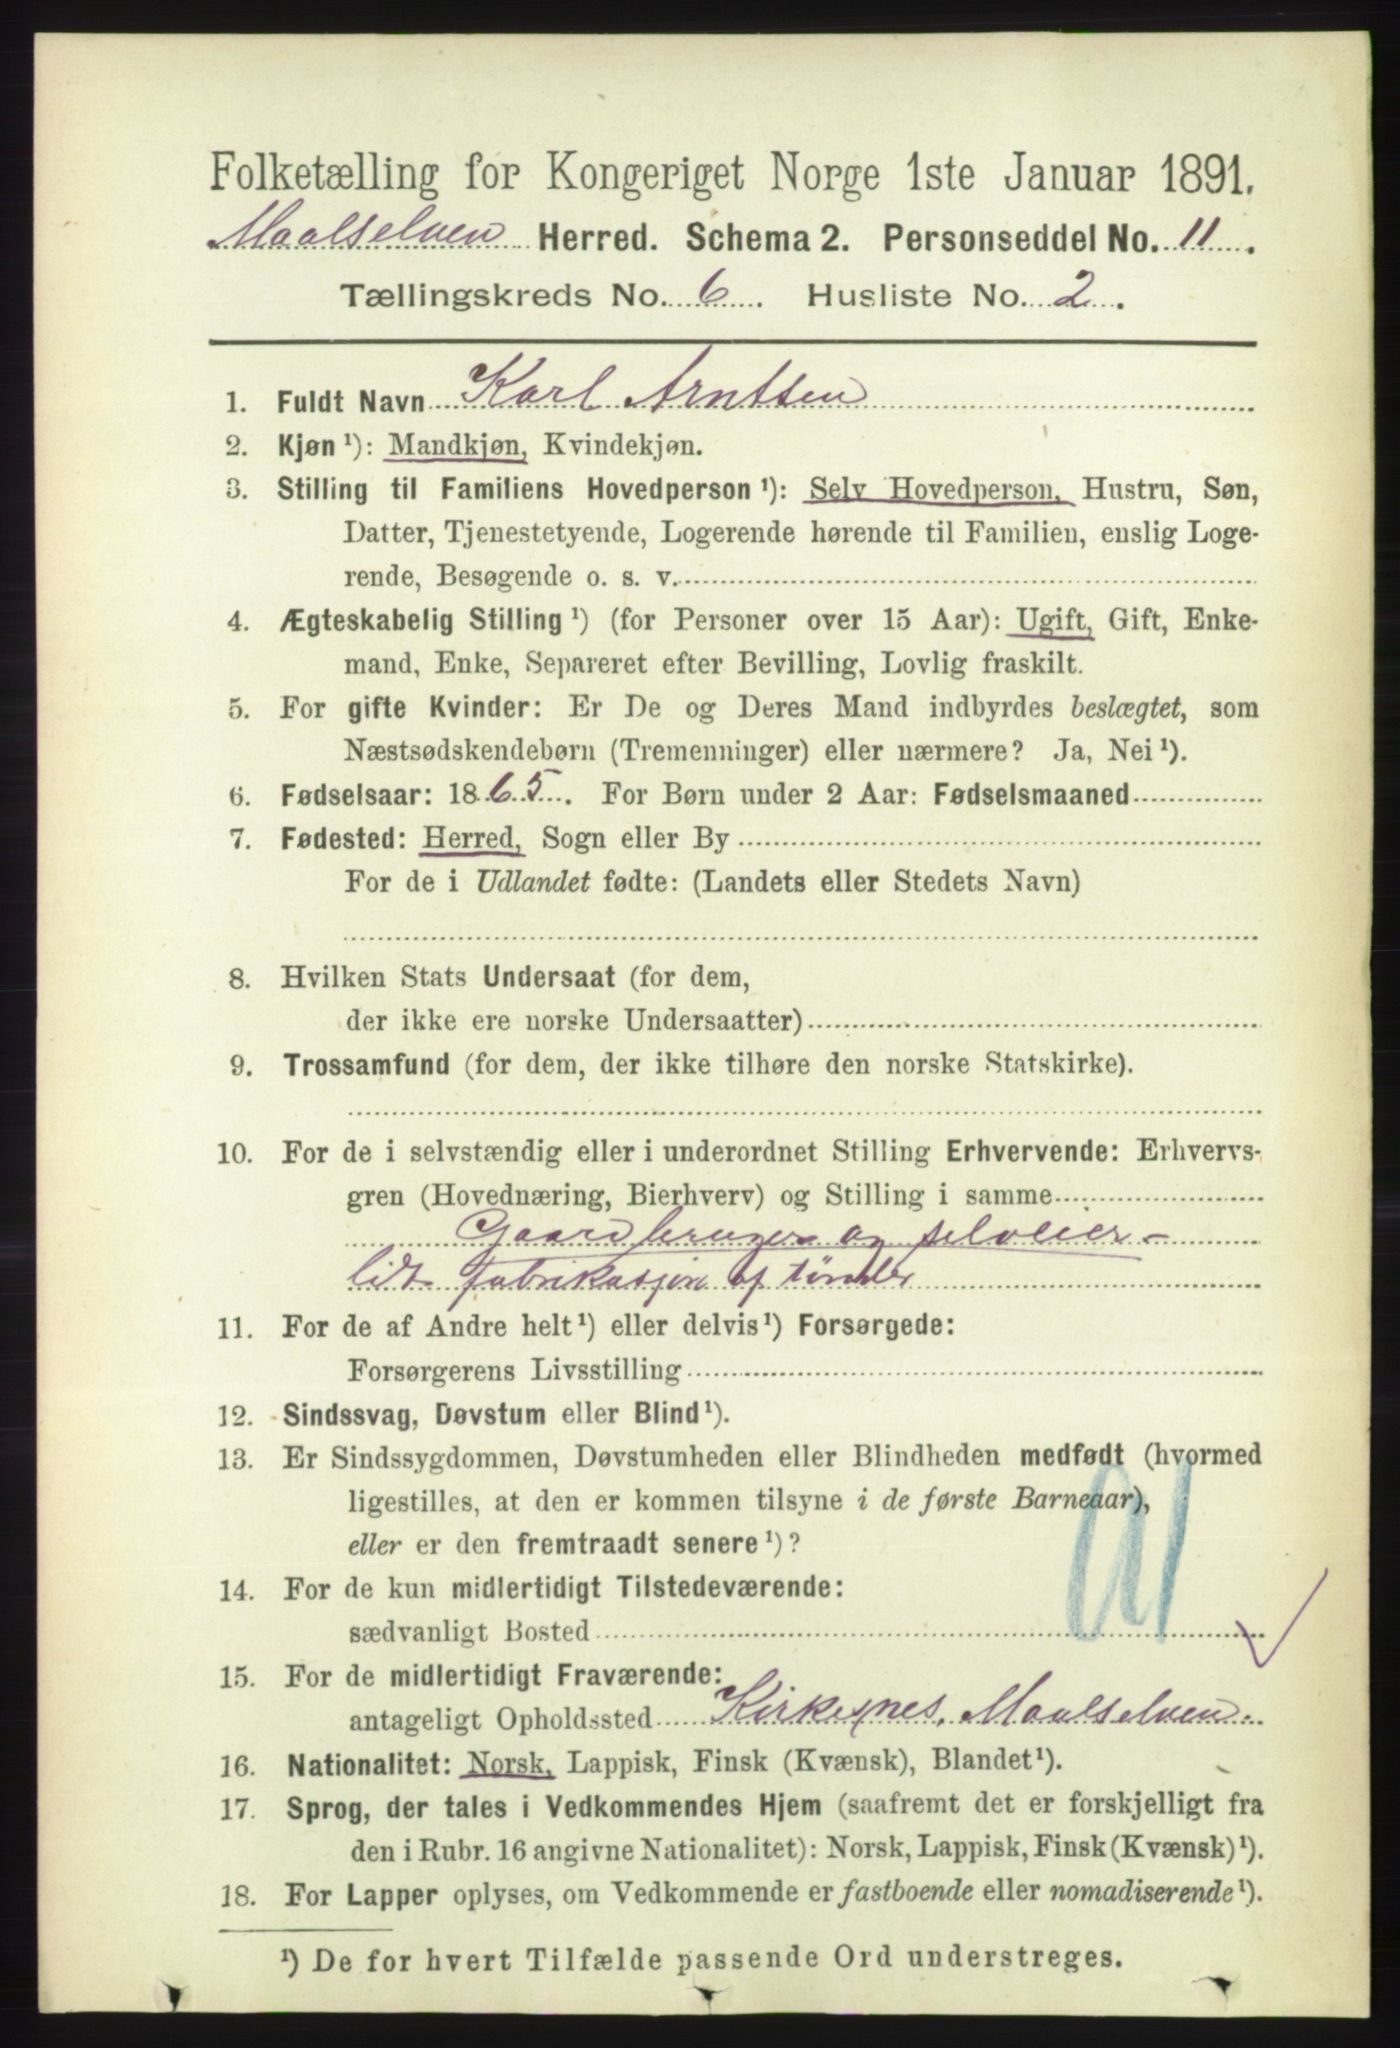 Folketælling for Kongeriget Norge 1ste Januar 1891.
Maalselven Herred. Schema 2. Personseddel No. 11.
Tællingskreds No. 6. Husliste No. 2.
1. Fuldt Navn Karl Arntsen
2. Kjøn ¹): Mandkjøn, Kvindekjøn.
3. Stilling til Familiens Hovedperson ¹): Selv Hovedperson, Hustru, Søn,
Datter, Tjenestetyende, Logerende hørende til Familien, enslig Loge-
rende, Besøgende o. s. v.
4. Ægteskabelig Stilling ¹) (for Personer over 15 Aar): Ugift, Gift, Enke-
mand, Enke, Separeret efter Bevilling, Lovlig fraskilt.
5. For gifte Kvinder: Er De og Deres Mand indbyrdes beslægtet, som
Næstsødskendebørn (Tremenninger) eller nærmere? Ja, Nei ¹).
6. Fødselsaar: 1865. For Børn under 2 Aar: Fødselsmaaned
7. Fødested: Herred, Sogn eller By
For de i Udlandet fødte: (Landets eller Stedets Navn)
8. Hvilken Stats Undersaat (for dem,
der ikke ere norske Undersaatter)
9. Trossamfund (for dem, der ikke tilhøre den norske Statskirke).
10. For de i selvstændig eller i underordnet Stilling Erhvervende: Erhvervs-
gren (Hovednæring, Bierhverv) og Stilling i samme
Gaardbruger og selveier -
lidt fabrikasjon af tønder
11. For de af Andre helt ¹) eller delvis ¹) Forsørgede:
Forsørgerens Livsstilling
12. Sindssvag, Døvstum eller Blind ¹).
13. Er Sindssygdommen, Døvstumheden eller Blindheden medfødt (hvormed
ligestilles, at den er kommen tilsyne i de første Barneaar),
eller er den fremtraadt senere ¹)?
14. For de kun midlertidigt Tilstedeværende:
sædvanligt Bosted
15. For de midlertidigt Fraværende:
antageligt Opholdssted Kirkesnes, Maalselven.
16. Nationalitet: Norsk, Lappisk, Finsk (Kvænsk), Blandet ¹).
17. Sprog, der tales i Vedkommendes Hjem (saafremt det er forskjelligt fra
den i Rubr. 16 angivne Nationalitet): Norsk, Lappisk, Finsk (Kvænsk) ¹).
18. For Lapper oplyses, om Vedkommende er fastboende eller nomadiserende ¹).
¹) De for hvert Tilfælde passende Ord understreges.